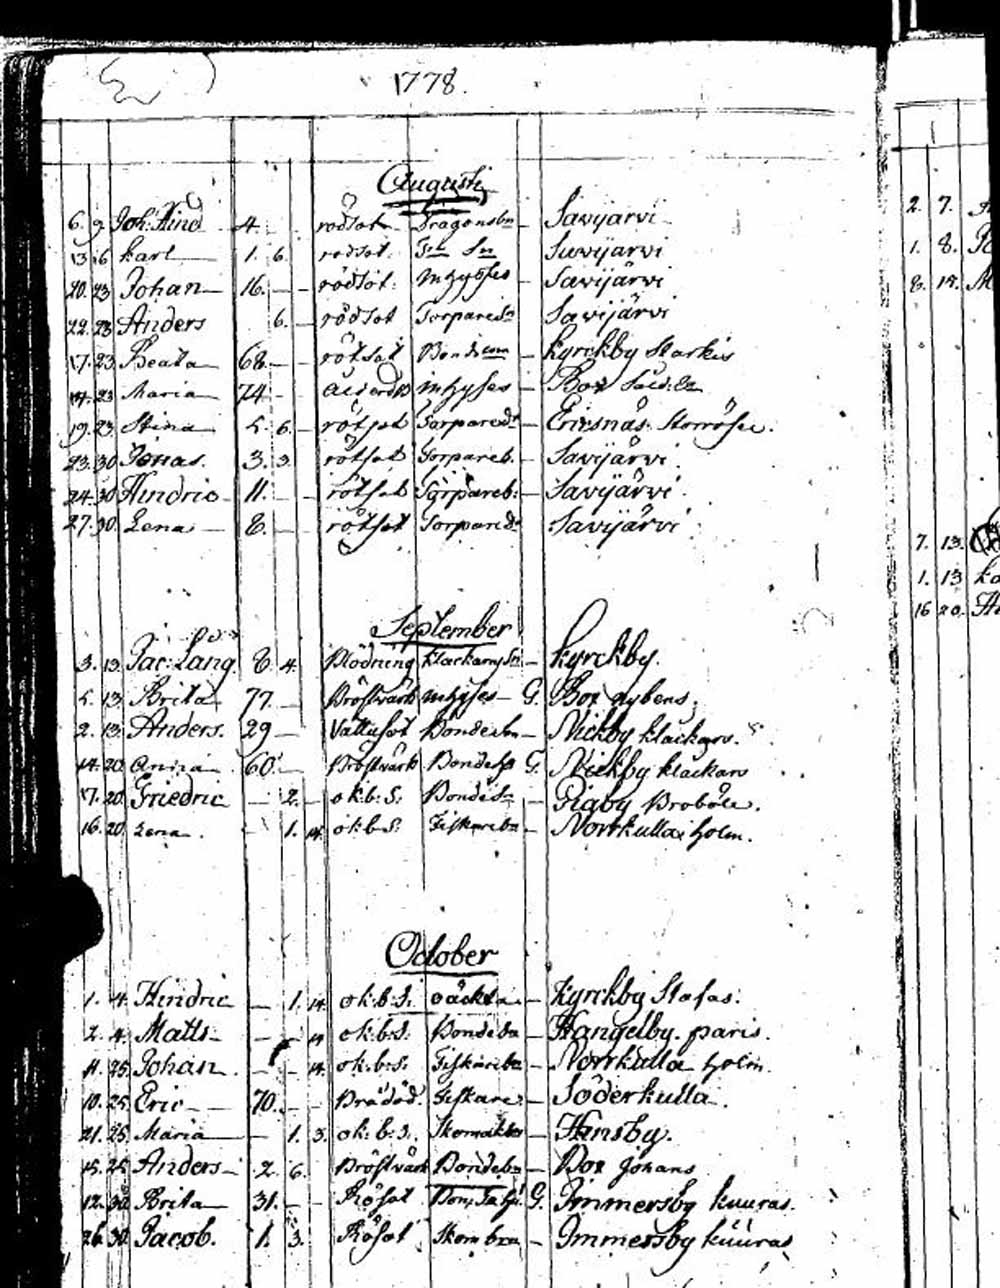 1778.
Augusti
6. 9. Joh: Hind 4. — rödsot Dragonsbn — Savijärvi
13 16 Karl — 1. 6. rödsot. — Savijärvi
20. 23 Johan — 16. — rödsot. Inhyses — Savijärvi
22. 23 Anders 6. — rödsot Torparesn — Savijärvi
17. 23. Beata — 68. — rötsot — Kyrckby Starkis
14. 23 Maria — 74 — Inhyses — Box
19. 23 Stina — 5. 6. — rötsot Torpared. — Eriksnäs.
23. 30 Jonas. 3. 3. rötsot Torpareb. — Savijärvi.
24. 30 Hindric — 11. — rötsot Torpareb. — Savijärvi
27. 30. Lena — 8. — rötsot Torpared. — Savijärvi
September
3. 13. Jac: Lång. 8. 4. Blödning — Kyrckby.
5. 13. Brita 77. — Bröstvärk Inhyses — G. Box nybens.
2. 13. Anders. 29 — Vattusot Bondeson — Nickby Klackars.
14. 20 Anna — 60. — Bröstvärk G. Nickby Klackars
17. 20. Friedric — 2. — ok: b: S. — Pigby Pröböle.
16. 20 Lena. — 1. 14. ok: b: S. Fiskareba — Norrkulla holm.
October
1. 4. Hindric — 1. 14. ok: b: S. oäckta — Kyrckby Stafas.
2. 4. Matts — — 14 ok: b: S. Bondeba — Hangelby. paris.
11. 25. Johan. — — 14. ok: b: S. Fiskareba — Norrkulla holm.
10. 25. Eric — 70. — Brådöd. Fiskare — Söderkulla.
21. 25. Maria — 1. 3. ok: b: S. — Hinsby.
15. 25 Anders — 2. 6. Bröstvärk Bondeba — Box Johans
12. 30. Brita — 31. — Rösot G. Immersby Kuuras.
26. 30. Jacob. 1. 3. Rösot — Immersby Kuuras
2. 7.
1. 8.
8. 15.
7. 13.
1. 13
16 20.